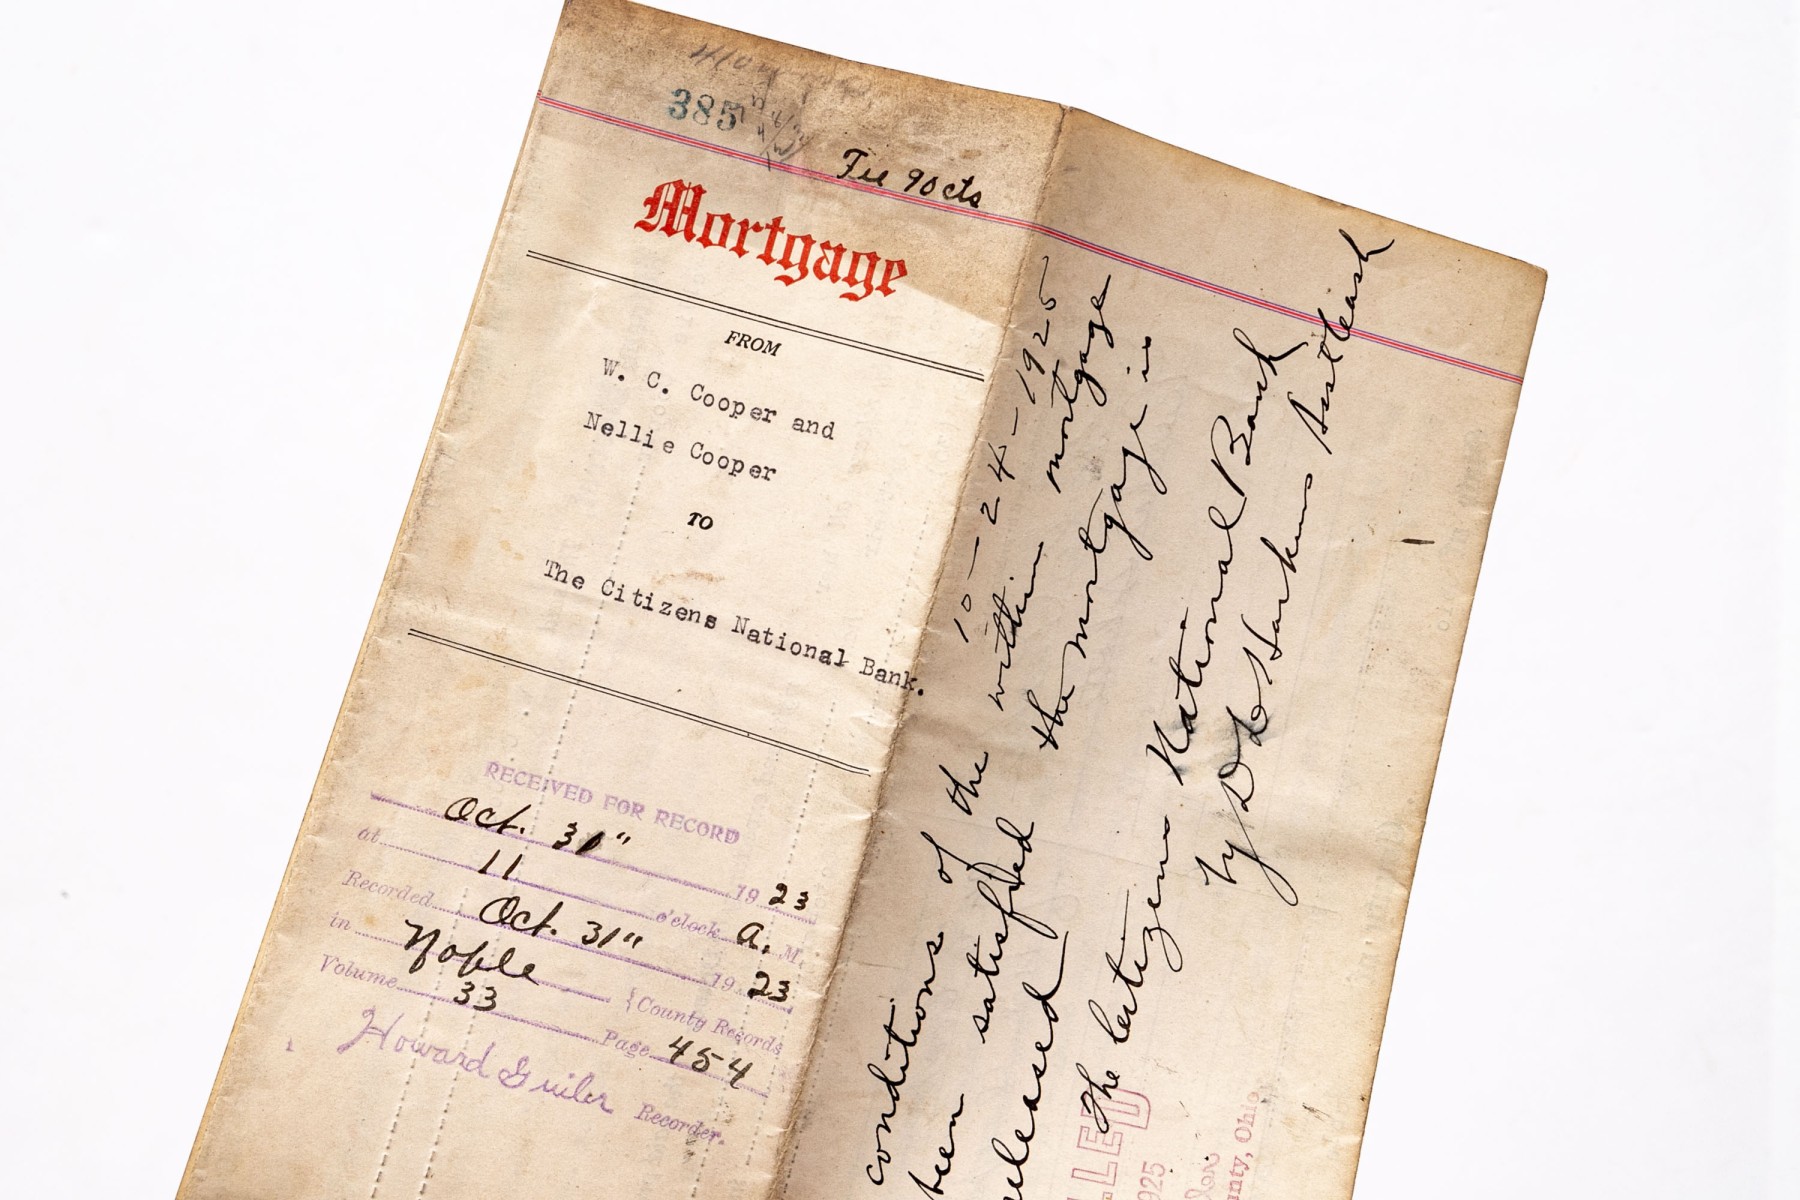 385
Fee 90 cts
Mortgage
FROM
W. C. Cooper and
Nellie Cooper
TO
The Citizens National Bank.
RECEIVED FOR RECORD
Oct. 31" 1923
at 11 o'clock A. M.
Recorded Oct. 31" 1923
in Noble County Records
Volume 33 Page 454
Howard Guiler Recorder.
10-24-1925
conditions of the within mortgage
been satisfied the mortgage is
released
The Citizens National Bank
by
LLED
925
unty, Ohio